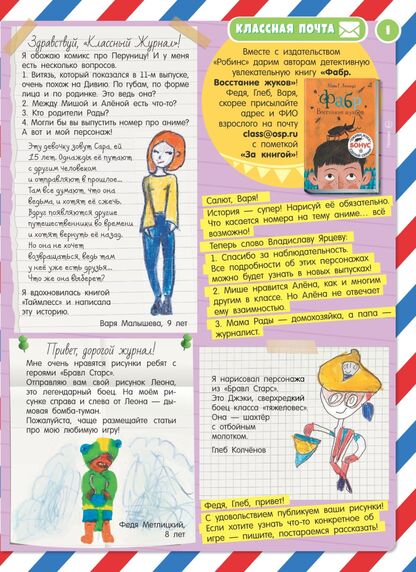 КЛАССНАЯ ПОЧТА
1
Здравствуй, «Классный Журнал»!
Я обожаю комикс про Перуницу! И у меня
есть несколько вопросов.
1. Витязь, который показался в 11-м выпуске,
очень похож на Дивию. По губам, по форме
лица и по родинке. Это ведь она?
2. Между Мишой и Алёной есть что-то?
3. Кто родители Рады?
4. Могли бы вы выпустить номер про аниме?
А вот и мой персонаж!
Эту девочку зовут Сара, ей
15 лет. Однажды её путают
с другим человеком
и отправляют в прошлое...
Там все думают, что она
ведьма, и хотят её сжечь.
Вдруг появляются другие
путешественники во времени
и хотят вернуть её назад.
Но она не хочет
возвращаться, ведь там
у неё уже есть друзья...
Что же она выберет?
Я вдохновилась книгой
«Таймлесс» и написала
эту историю.
Варя Малышева, 9 лет
Вместе с издательством
«Робинс» дарим авторам детективную
увлекательную книгу «Фабр.
Восстание жуков»!
Федя, Глеб, Варя,
скорее присылайте
адрес и ФИО
взрослого на почту
class@osp.ru
с пометкой
«За книгой»!
Фабр
Восстание жуков
БОНУС
Салют, Варя!
История — супер! Нарисуй её обязательно.
Что касается номера на тему аниме... всё
возможно!
Теперь слово Владиславу Ярцеву:
1. Спасибо за наблюдательность.
Все подробности об этих персонажах
можно будет узнать в новых выпусках!
2. Мише нравится Алёна, как и многим
другим в классе. Но Алёна не отвечает
ему взаимностью.
3. Мама Рады — домохозяйка, а папа —
журналист.
Привет, дорогой журнал!
Мне очень нравятся рисунки ребят с
героями «Бравл Старс».
Отправляю вам свой рисунок Леона,
это легендарный боец. На моём ри-
сунке справа и слева от Леона — ды-
мовая бомба-туман.
Пожалуйста, чаще размещайте статьи
про мою любимую игру!
Федя Метлицкий,
8 лет
Я нарисовал персонажа
из «Бравл Старс».
Это Джэки, сверхредкий
боец класса «тяжеловес».
Она — шахтёр
с отбойным
молотком.
Глеб Колчёнов
Федя, Глеб, привет!
С удовольствием публикуем ваши рисунки!
Если хотите узнать что-то конкретное об
игре — пишите, постараемся рассказать!